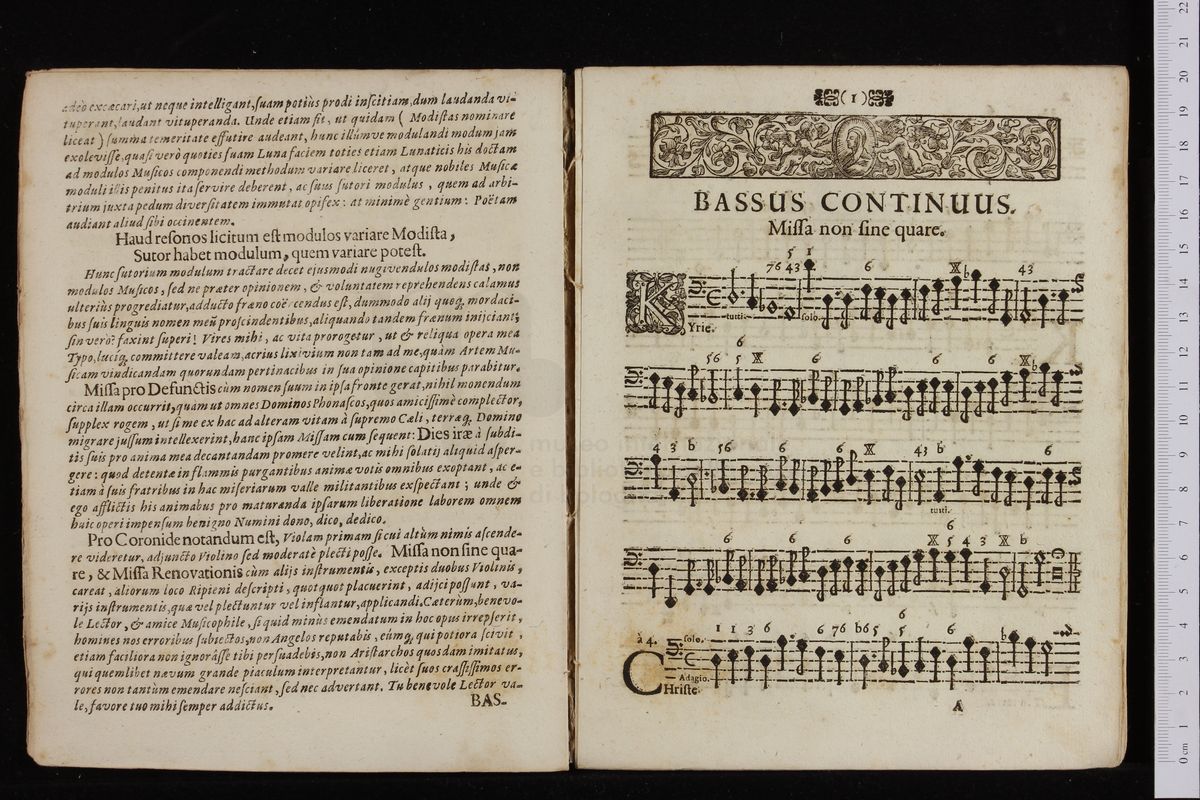 adeò excæcari, ut neque intelligant, suam potiùs prodi inscitiam, dum laudanda vi-
tuperant, laudant vituperanda. Unde etiam fit, ut quidam ( Modistas nominare
liceat ) summa temeritate effutire audeant, hunc illúmve modulandi modum jam
exolevisse, quasi verò quoties suam Luna faciem toties etiam Lunaticis his doctam
ad modulos Musicos componendi methodum variare liceret, atque nobiles Musicæ
moduli illis penitus ita servire deberent, ac suus sutori modulus, quem ad arbi-
trium juxta pedum diversitatem immutat opifex: at minimè gentium: Poëtam
audiant aliud sibi occinentem.
Haud resonos licitum est modulos variare Modista,
Sutor habet modulum, quem variare potest.
Hunc sutorium modulum tractare decet ejusmodi nugivendulos modistas, non
modulos Musicos, sed ne præter opinionem, & voluntatem reprehendens calamus
ulteriùs progrediatur, adducto fræno coërcendus est, dummodo alij quoq; mordaci-
bus suis linguis nomen meũ proscindentibus, aliquando tandem frænum inijciant;
sin verò? faxint superi! Vires mihi, ac vita prorogetur, ut & reliqua opera mea
Typo, luciq; committere valeam, acrius lixivium non tam ad me, quàm Artem Mu-
sicam vindicandam quorundam pertinacibus in sua opinione capitibus parabitur.
Missa pro Defunctis cùm nomen suum in ipsa fronte gerat, nihil monendum
circa illam occurrit, quam ut omnes Dominos Phonascos, quos amicissimè complector,
supplex rogem, ut si me ex hac ad alteram vitam à supremo Cæli, terræq; Domino
migrare jussum intellexerint, hanc ipsam Missam cum sequent: Dies iræ à subdi-
tis suis pro anima mea decantandam promere velint, ac mihi solatij aliquid asper-
gere: quod detentæ in flammis purgantibus animæ votis omnibus exoptant, ac e-
tiam à suis fratribus in hac miseriarum valle militantibus exspectant; unde &
ego afflictis his animabus pro maturanda ipsarum liberatione laborem omnem
huic operi impensum benigno Numini dono, dico, dedico.
Pro Coronide notandum est, Violam primam si cui altùm nimis ascende-
re videretur, adjuncto Violino sed moderatè plecti posse. Missa non sine qua-
re, & Missa Renovationis cùm alijs instrumentis, exceptis duobus Violinis,
careat, aliorum loco Ripieni descripti, quotquot placuerint, adijci possunt, va-
rijs instrumentis, quæ vel plectuntur vel inflantur, applicandi. Cæterùm, benevo-
le Lector, & amice Musicophile, si quid minùs emendatum in hoc opus irrepserit,
homines nos erroribus subiectos, non Angelos reputabis, eúmq; qui potiora scivit,
etiam faciliora non ignorâsse tibi persuadebis, non Aristarchos quosdam imitatus,
qui quemlibet nævum grande piaculum interpretantur, licèt suos crassissimos er-
rores non tantùm emendare nesciant, sed nec advertant. Tu benevole Lector va-
le, favore tuo mihi semper addictus.
BAS-
( 1 )
BASSUS CONTINUUS.
Missa non sine quare.
5 1
76 43 6 X b 43
KYrie.
tutti. solo.
6
56 5 X 6 6 6 X b
4 3 b 56 6 6 X 43 b 6
tutti.
6
6 6 6 X 5 4 3 X b
6
1 1 3 6 6 76 b65 5 6
à 4. solo.
Adagio.
CHriste.
A